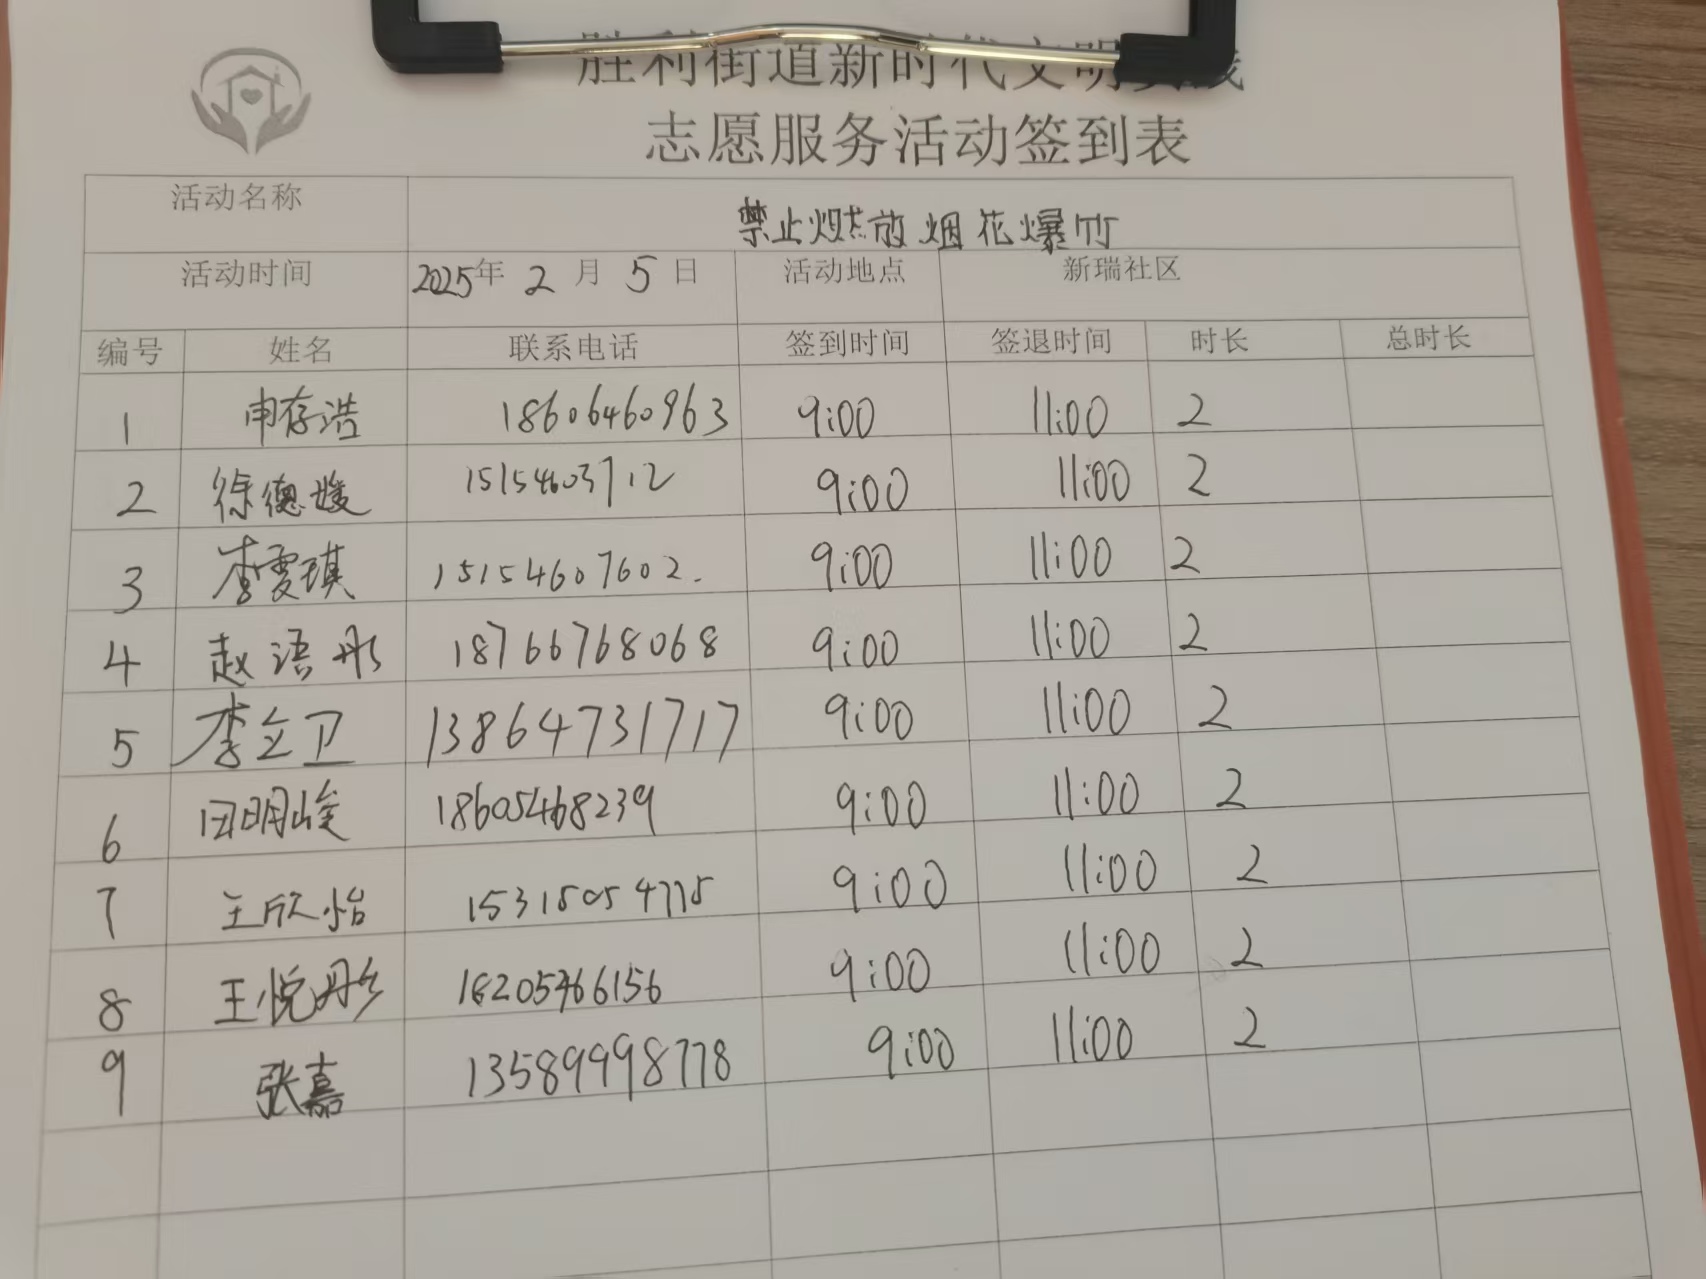 胜利街道新时代文明实践
志愿服务活动签到表
活动名称 禁止燃放烟花爆竹
活动时间 2025年 2 月 5 日 活动地点 新瑞社区
编号 姓名 联系电话 签到时间 签退时间 时长 总时长
1 申存浩 18606460963 9:00 11:00 2
2 徐德媛 15154603712 9:00 11:00 2
3 李雯琪 15154607602. 9:00 11:00 2
4 赵语彤 18766768068 9:00 11:00 2
5 李立卫 13864731717 9:00 11:00 2
6 田明峻 18605468239 9:00 11:00 2
7 王欣怡 15315054775 9:00 11:00 2
8 王悦彤 9:00 11:00 2
9 张嘉 13589998778 9:00 11:00 2